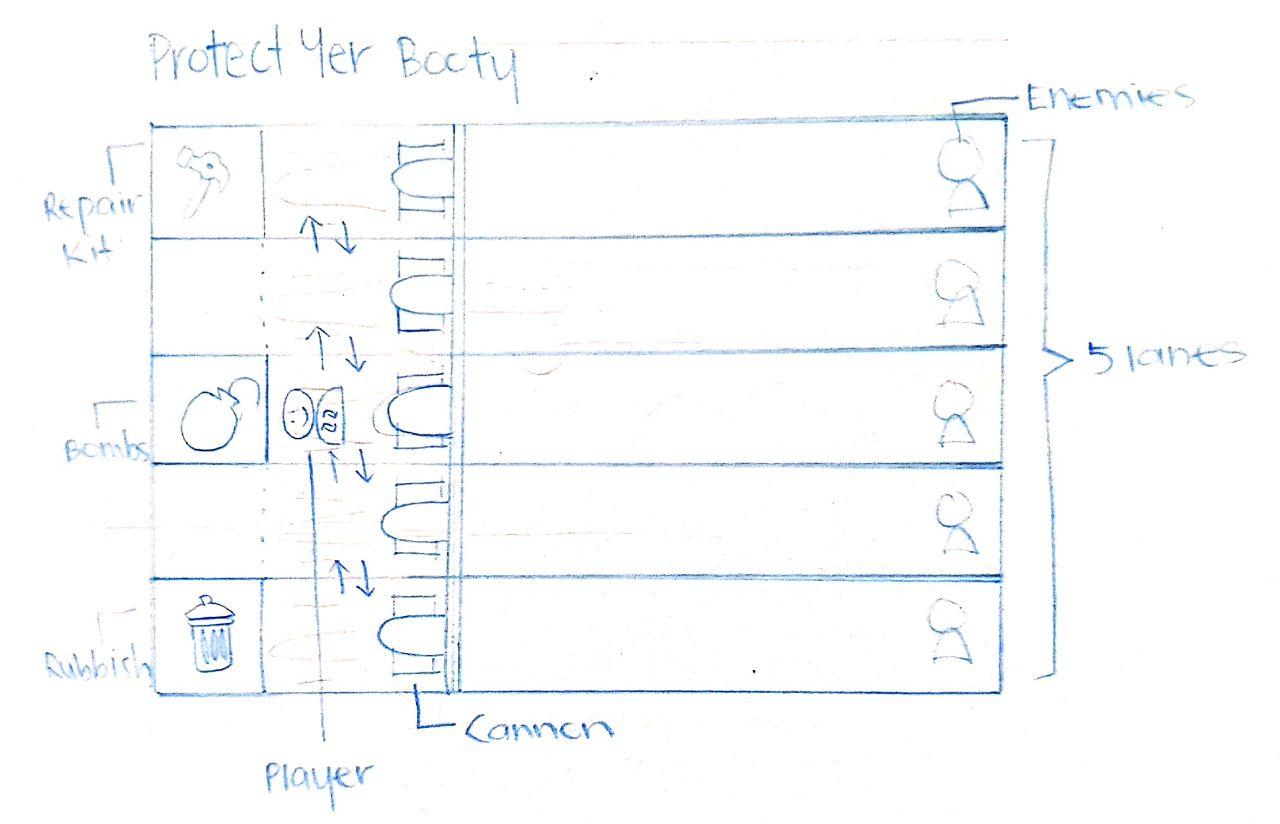 Protect Yer Booty
Enemies
Repair
Kit
5 lanes
Bombs
Rubbish
Cannon
Player